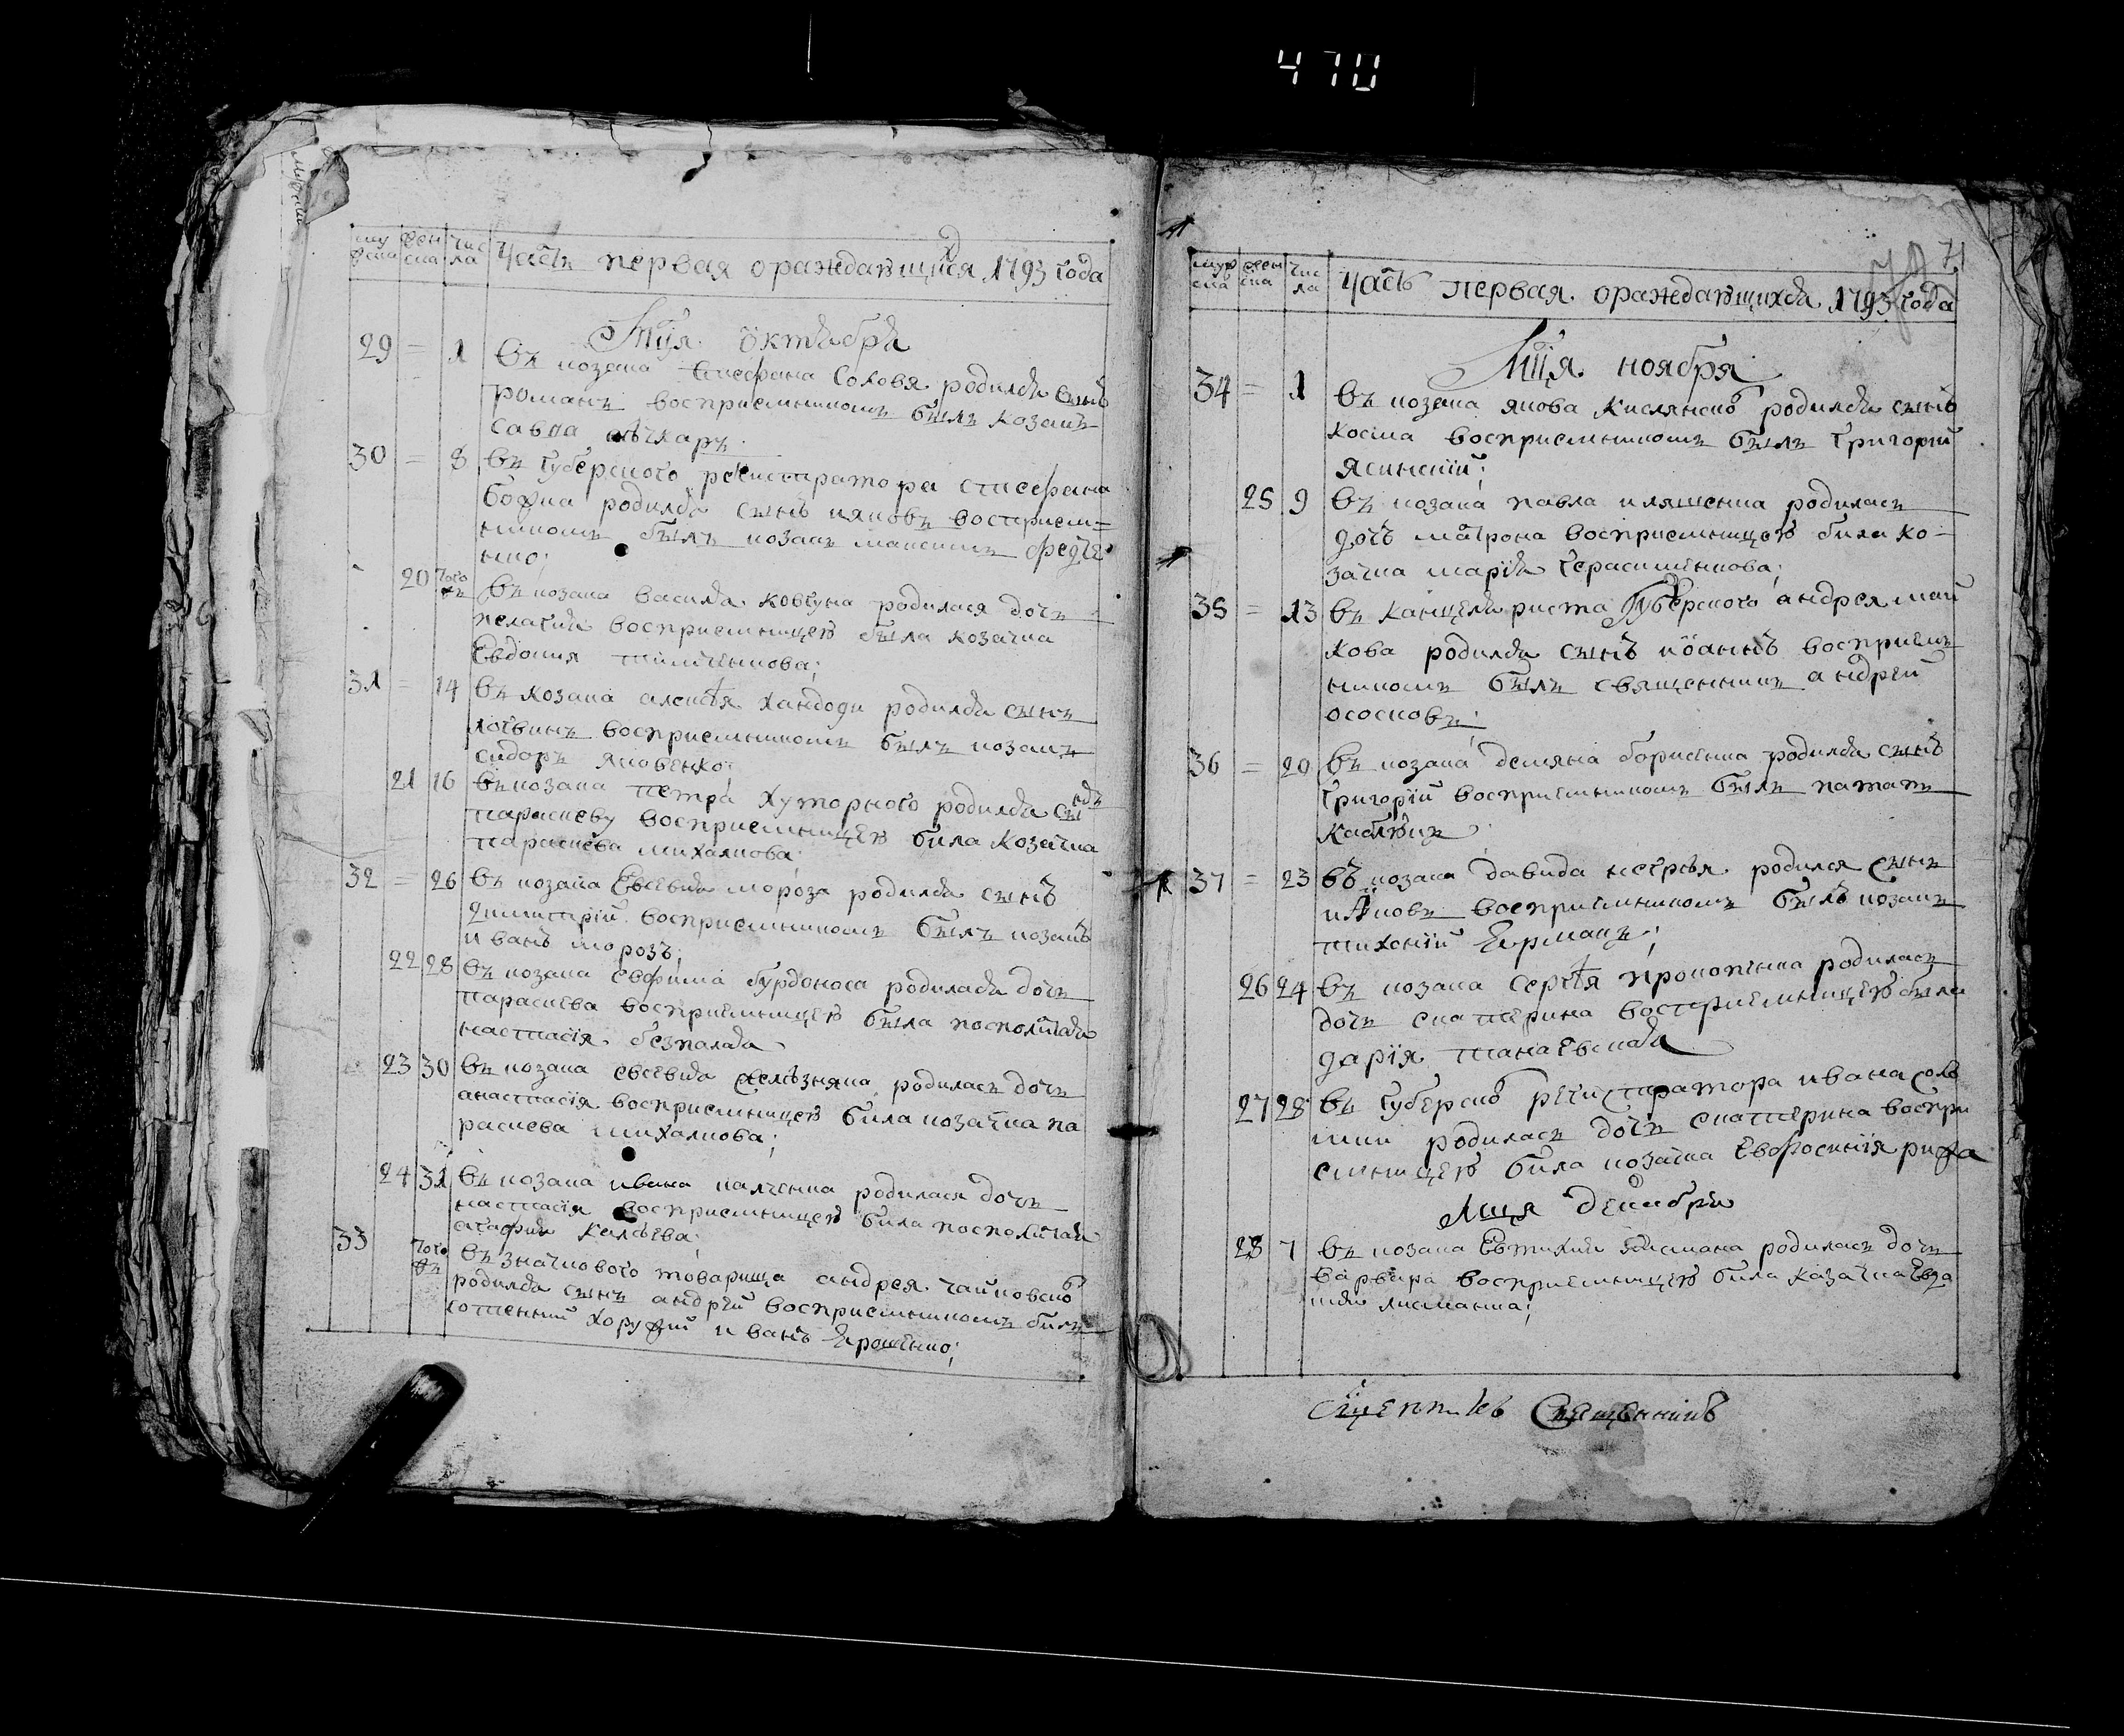 470
муж
еска
жен
ска
чис
ла
Часть первая ораждающихся 1793 года
Мця октября
29 = 1 въ козака Стефана Соловя родился сынъ
романъ восприемникомъ былъ козакъ
савка
30 = 8 въ губерского рекистратора стефана
родился сынъ ияковъ восприем=
никомъ былъ козакъ максимъ федче
нко;
20 того ж въ козака василя ковгуна родилася дочъ
пелагия восприемницею была козачка
Евдокия
31 = 14 въ козака алексѣя хандоги родился сынъ
логвинъ восприемникомъ былъ козакъ
сидоръ яковенко;
21 16 въ козака петра хуторного родился
параскеву восприемницею била козачка
параскева михалкова;
32 = 26 въ козака Евсевия мороза родился сынъ
димитрий восприемникомъ былъ козакъ
иванъ морозъ;
22 28 въ козака евфима бурдоноса родилася дочъ
параскева восприемницею была посполитая
настасия безпалая
23 30 въ козака евсевия железняка родилась дочъ
анастасия восприемницею била козачка па
раскева михалкова;
24 31 въ козака ивана калченка родилася дочъ
настасия восприемницею била посполитая
агафия
33 того ж въ значкового товарища андрея чайковско
родился сынъ андрей восприемникомъ билъ
сотенный хоружий иванъ Ерошенко;
71
муж
ска
жен
ска
чис
ла
Часть первая ораждающихся 1793 года
Мця ноября
34 = 1 въ козака якова кислянско родился сынъ
косма восприемникомъ былъ григорий
ясинский;
25 9 въ козака павла иляшенка родилась
дочъ матрона восприемницею била ко-
зачка мария герасименкова;
35 = 13 въ канцеляриста губерского андрея май
кова родился сынъ иоаннъ восприем
никомъ былъ священникъ андрей
36 = 20 въ козака демяна борисенка родился сынъ
григорий восприемникомъ былъ
37 = 23 въ козака давида нестеря родился сынъ
ияковъ восприемникомъ былъ козакъ
тихоний Ермакъ;
26 24 въ козака сергѣя прокопенка родилась
дочъ екатерина восприемницею была
дария танаевская
27 28 въ губерско регистратора ивана соло
родилась дочъ екатерина воспри
емницею била козачка Евфросиния
Мця декабря
28 7 въ козака Евтихия родилась дочъ
варвара восприемницею била козачка
Священникъ